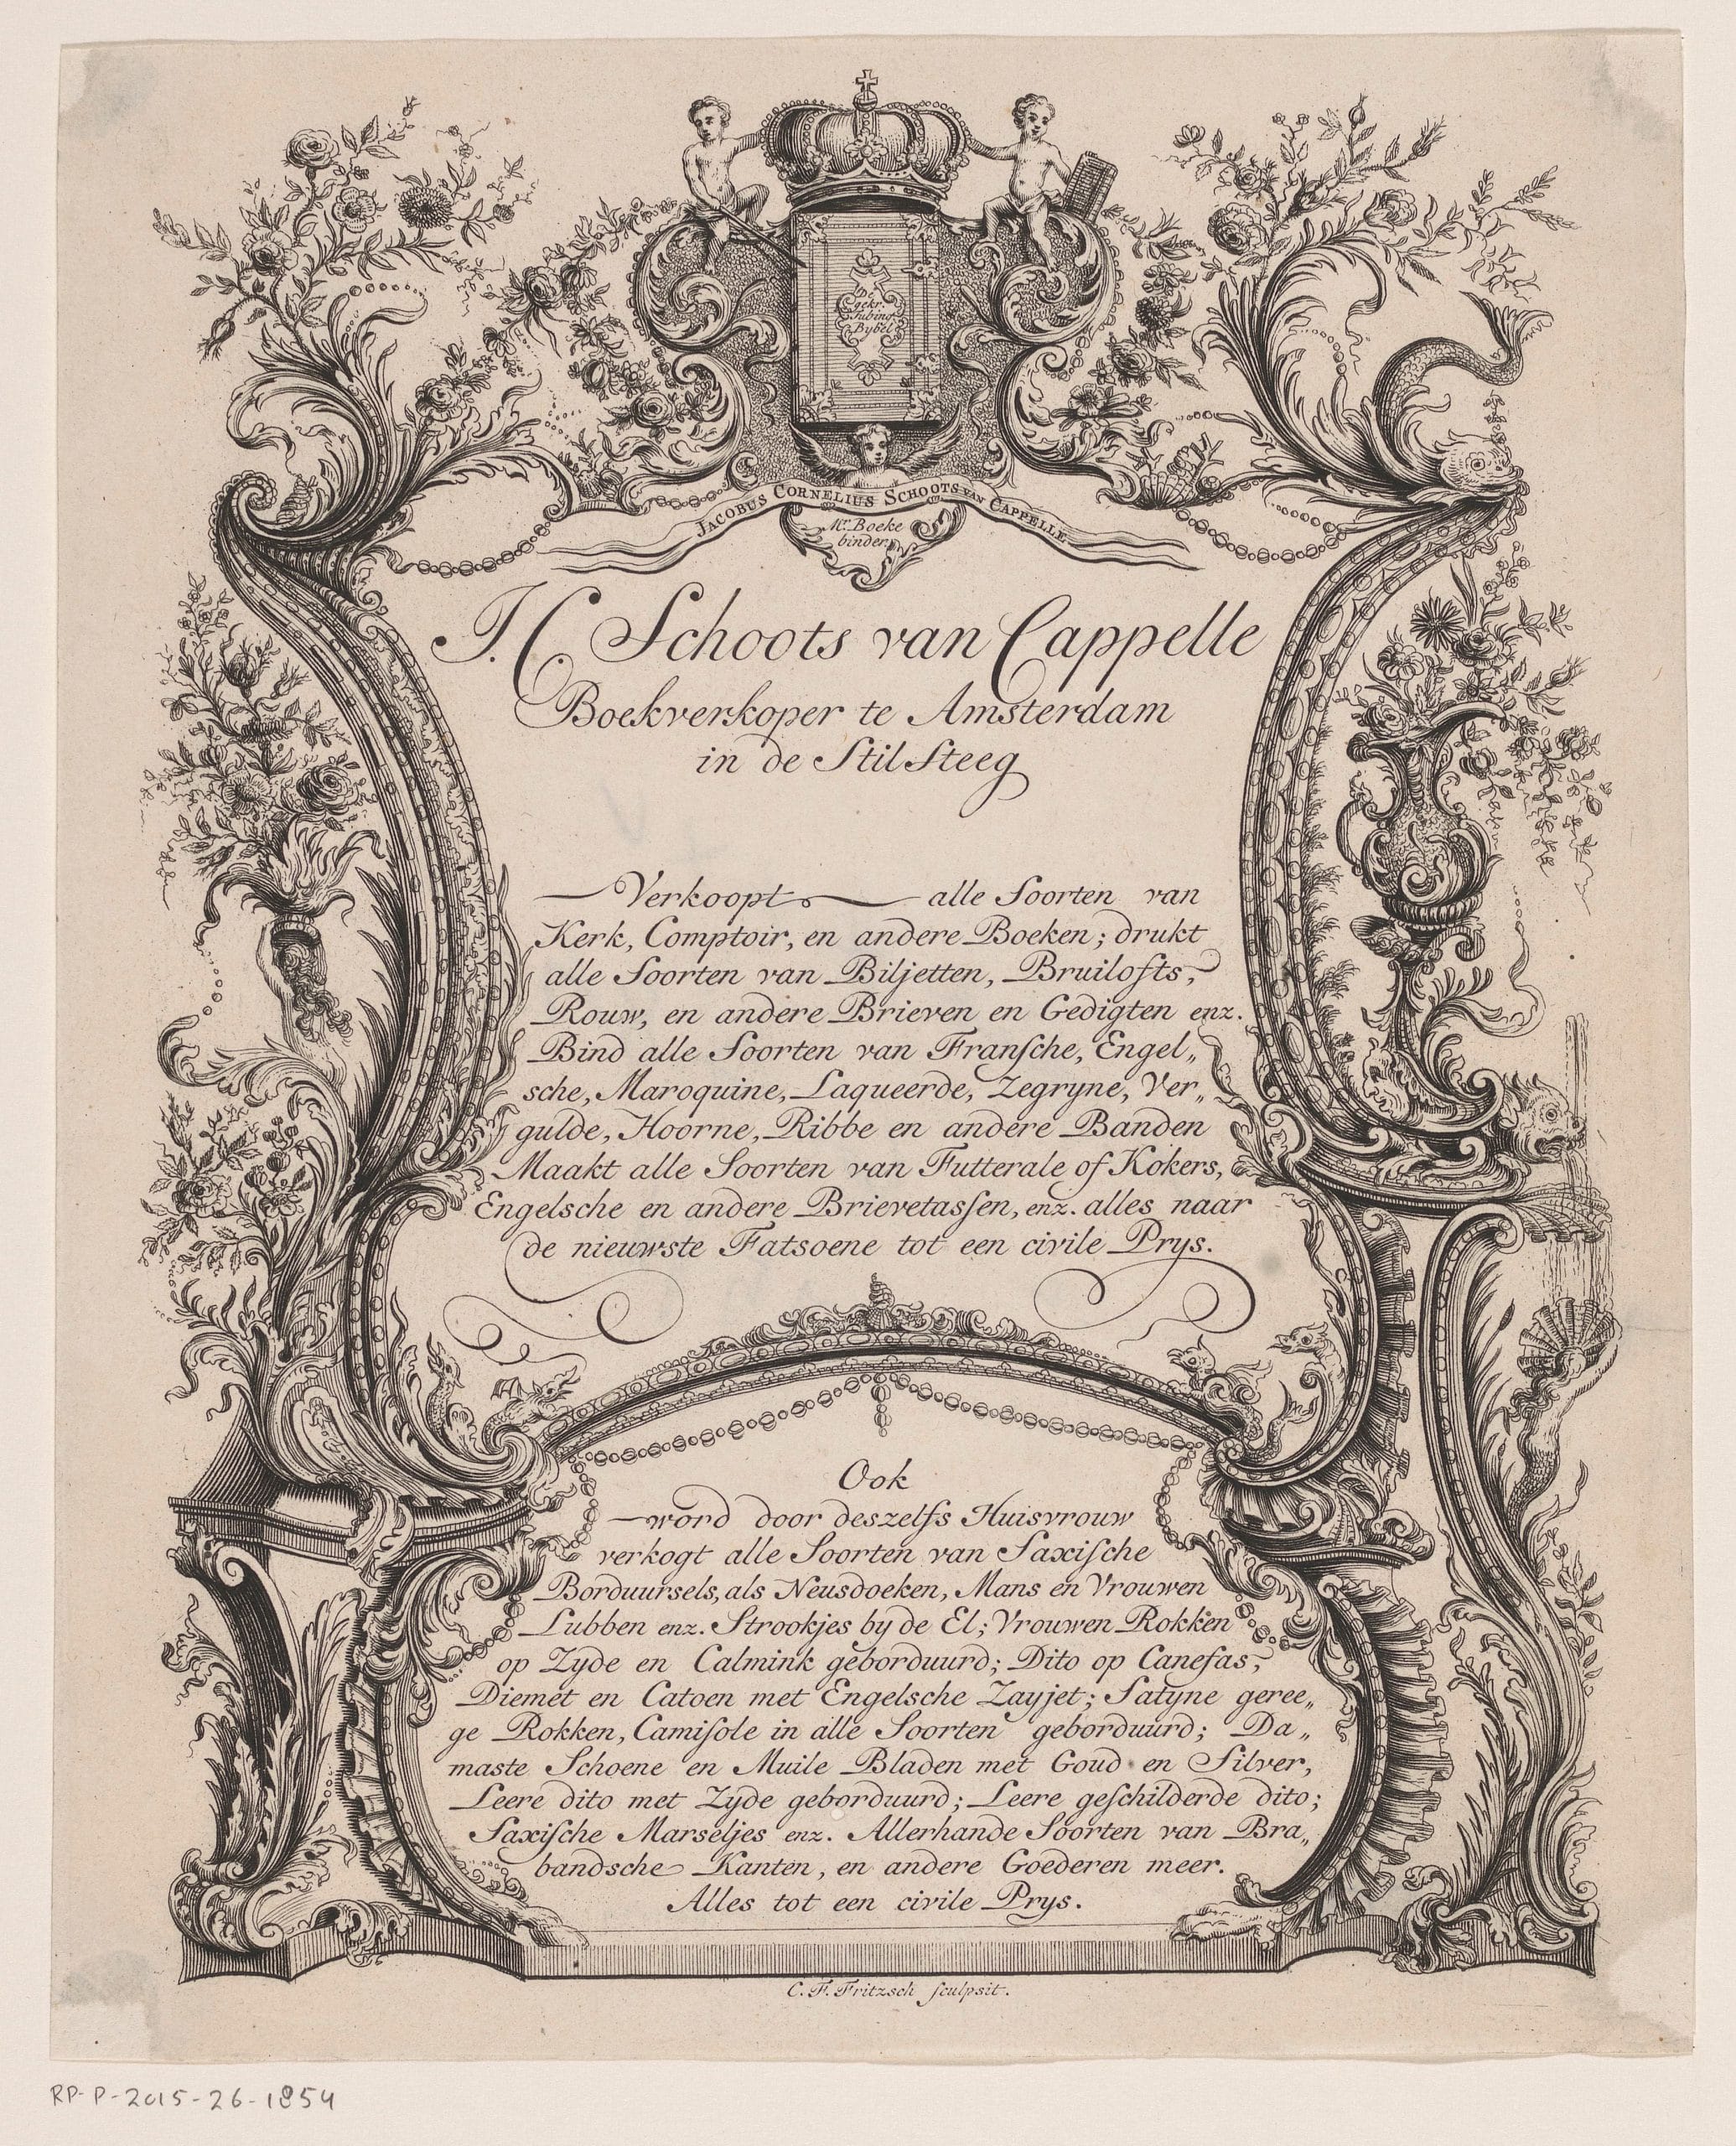 De
gekr.
Tubing
Bybel
JACOBUS CORNELIUS SCHOOTS VAN CAPPELLE
Mr. Boeke
binder
J. C Schoots van Cappelle
Boekverkoper te Amsterdam
in de Stilsteeg
Verkoopt alle Soorten van
Kerk, Comptoir, en andere Boeken; drukt
alle Soorten van Biljetten, Bruilofts,
Rouw, en andere Brieven en Gedigten enz.
Bind alle Soorten van Fransche, Engel„
sche, Maroquine, Laqueerde, Zegryne, Ver„
gulde, Hoorne, Ribbe en andere Banden
Maakt alle Soorten van Futterale of Kokers,
Engelsche en andere Brievetassen, enz. alles naar
de nieuwste Fatsoene tot een civile Prys.
Ook
word door deszelfs Huisvrouw
verkogt alle Soorten van Saxische
Borduursels, als Neusdoeken, Mans en Vrouwen
Lubben enz. Strookjes by de El; Vrouwen Rokken
op Zyde en Calmink geborduurd; Dito op Canefas,
Diemet en Catoen met Engelsche Zayjet; Satyne geree„
ge Rokken, Camisole in alle Soorten geborduurd; Da„
maste Schoene en Muile Bladen met Goud en Silver,
Leere dito met Zyde geborduurd; Leere geschilderde dito;
Saxische Marseljes enz. Allerhande Soorten van Bra„
bandsche Kanten, en andere Goederen meer.
Alles tot een civile Prys.
C. F. Fritzsch sculpsit.
RP-P-2015-26-1854